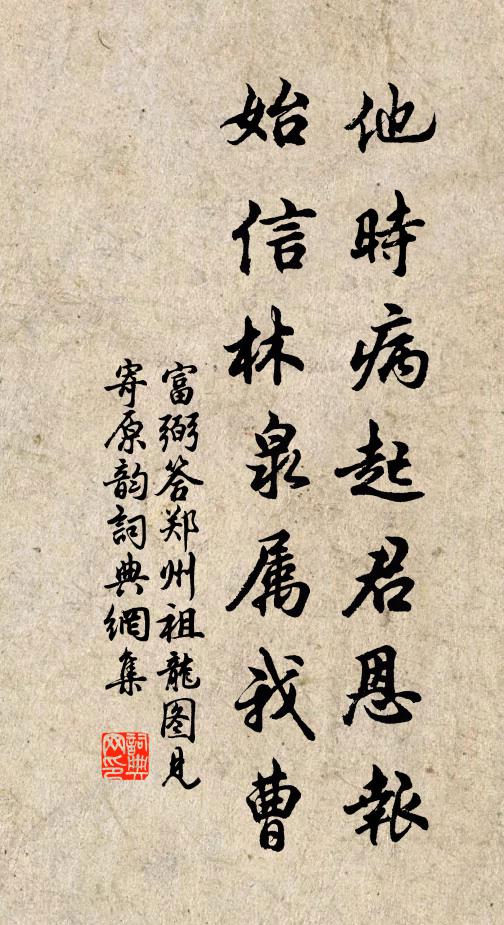 他時病起君恩報
始信林泉属我曹
富弼答郑州祖龍图見
寄原韵詞典網集
詞典
网印